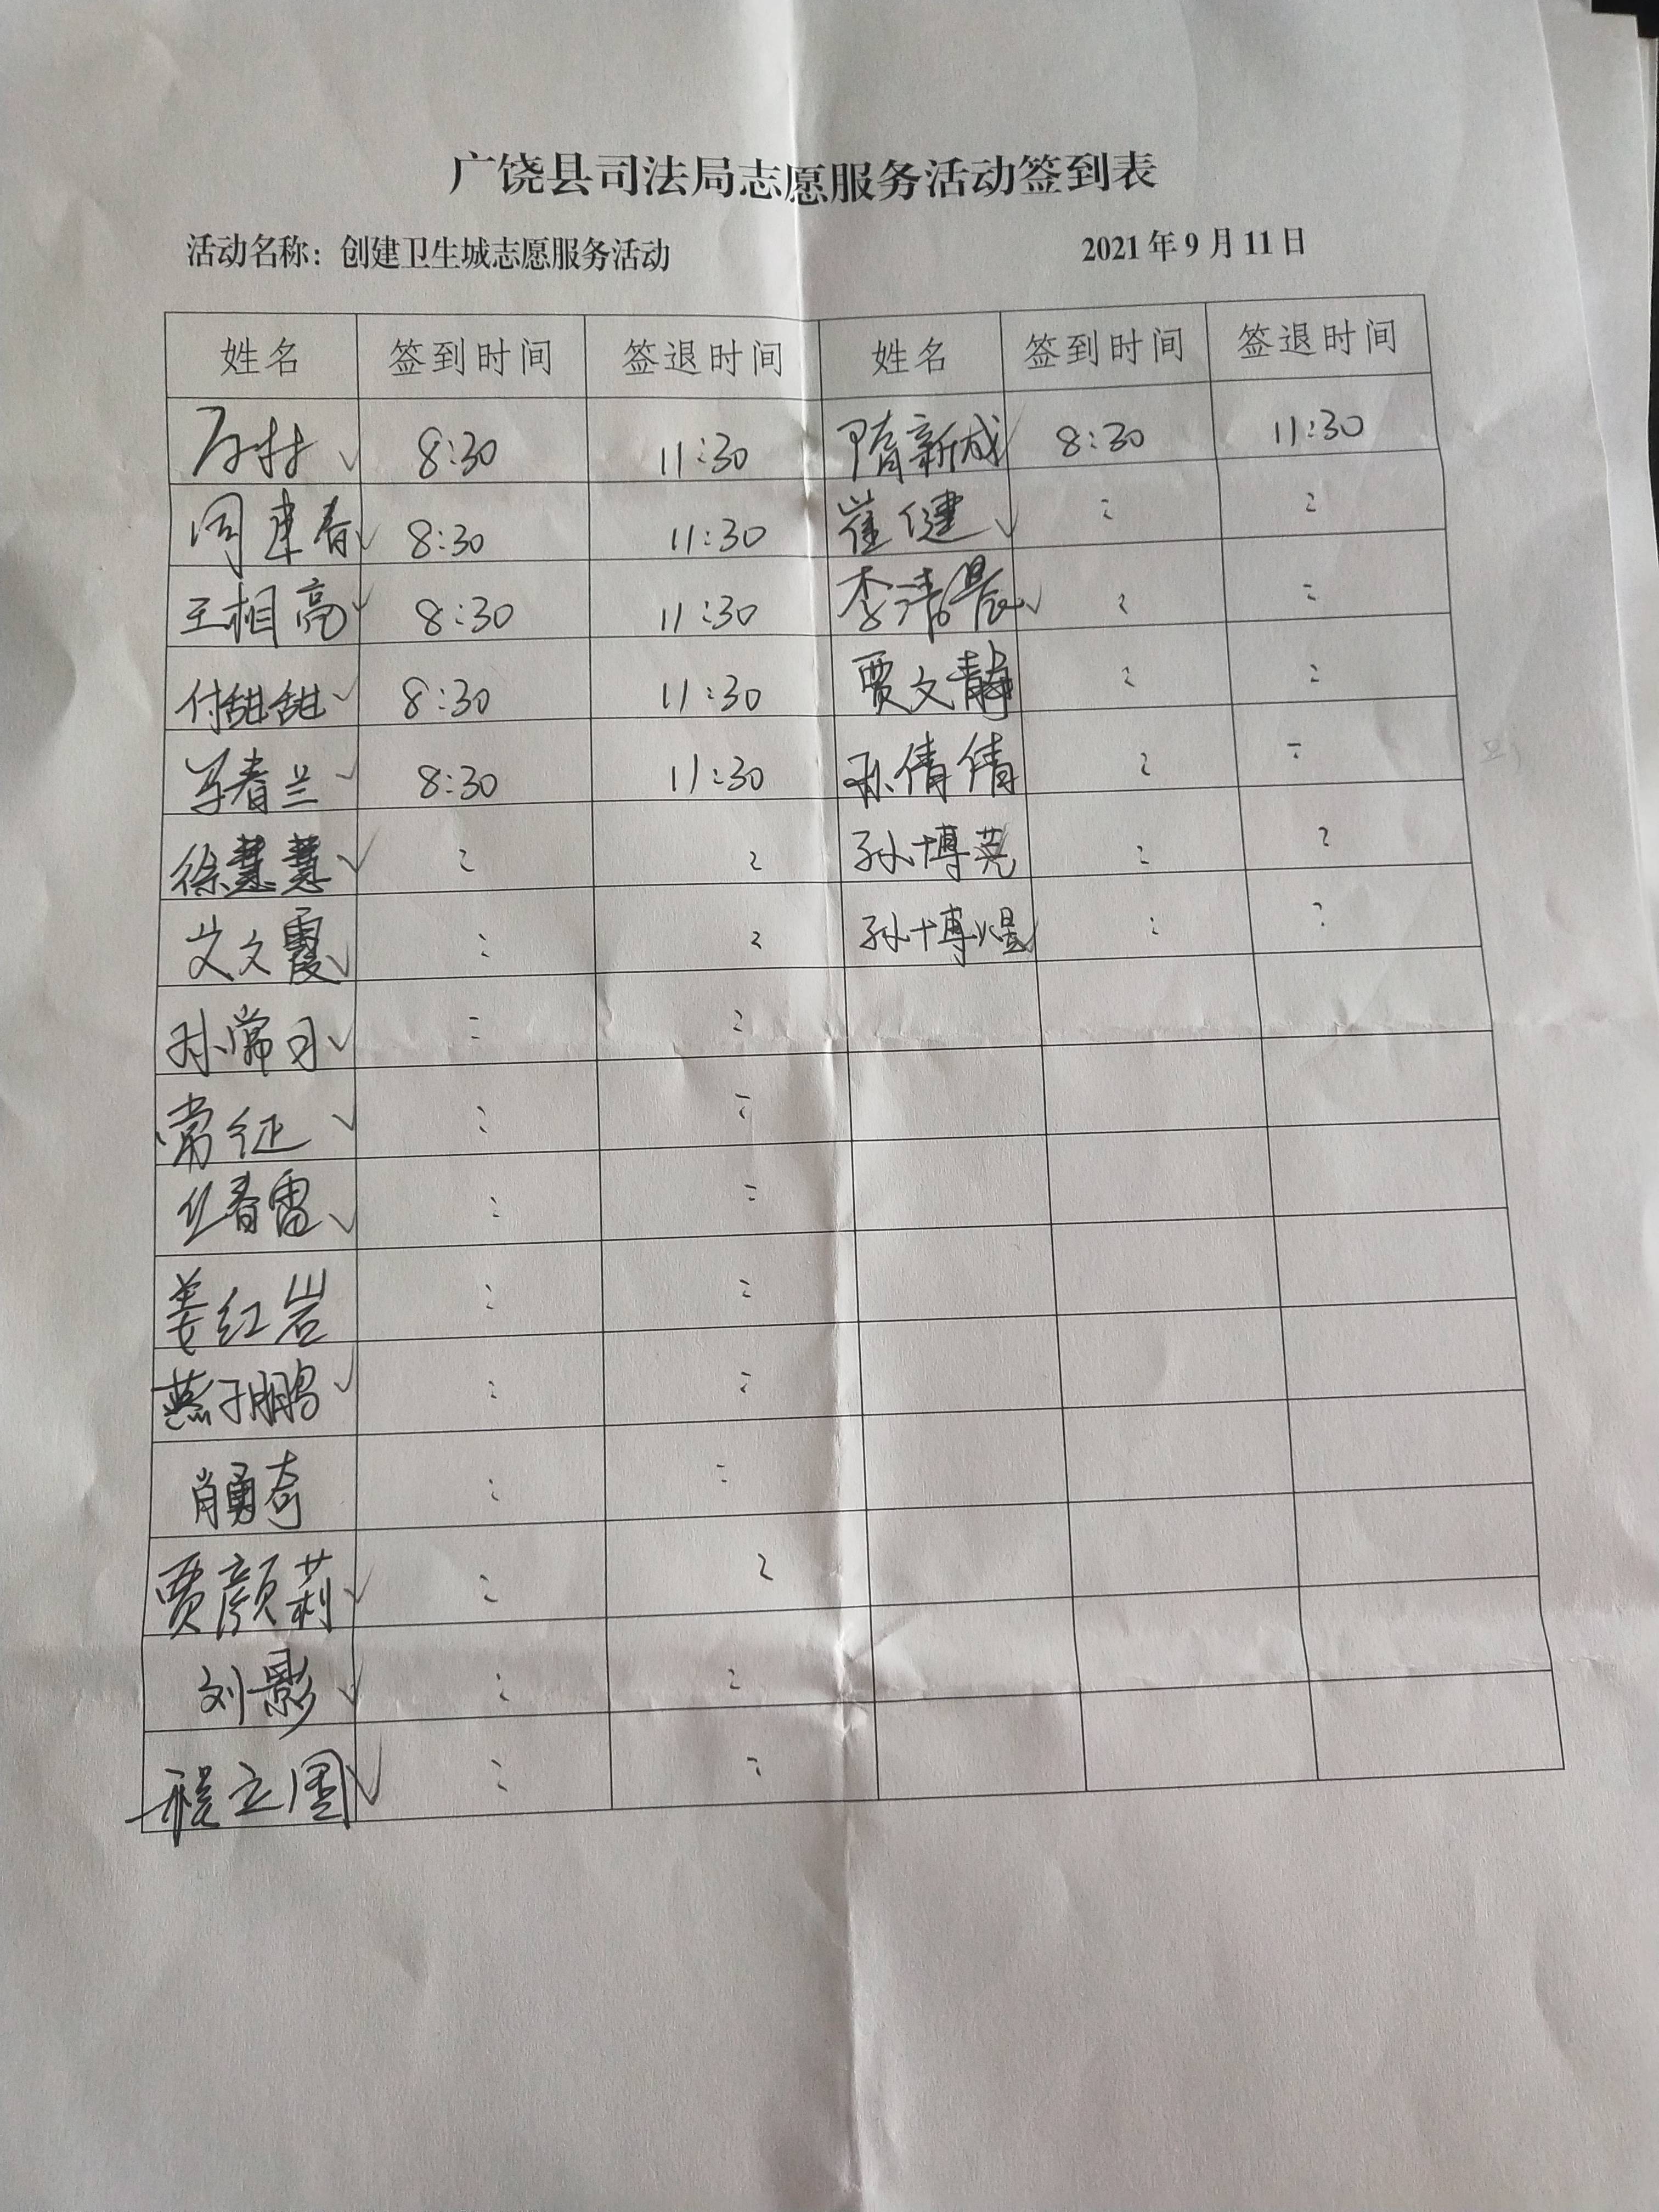 广饶县司法局志愿服务活动签到表
活动名称：创建卫生城志愿服务活动 2021年9月11日
姓名 签到时间 签退时间 姓名 签到时间 签退时间
✓ 8:30 11:30 隋新成 ✓ 8:30 11:30
周建春 ✓ 8:30 11:30 崔健 ✓ 〻 〻
王相亮 ✓ 8:30 11:30 李清晨 ✓ 〻 〻
付甜甜 ✓ 8:30 11:30 贾文静 〻 〻
春兰 ✓ 8:30 11:30 孙倩倩 〻 〻
徐慧慧 ✓ 〻 〻 孙博 〻 〻
艾文霞 ✓ 〻 〻 孙博焜 〻 〻
孙常 ✓ 〻 〻
常征 ✓ 〻 〻
春雷 ✓ 〻 〻
姜红岩 〻 〻
燕子鹏 ✓ 〻 〻
肖勇奇 〻 〻
贾颜莉 ✓ 〻 〻
刘影 ✓ 〻 〻
程立国 ✓ 〻 〻